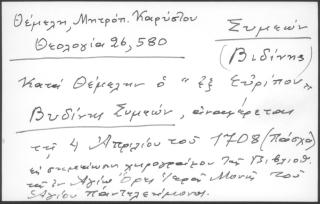 Θέμελη, Μητρόπ. Καρύστου
Θεολογία 26, 580
Συμεών
(Βιδύνης)
Κατά Θέμελην ὁ "ἐξ Εὐρίπου"
Βυδίνης Συμεών, ἀναφέρεται
τῇ 4 Ἀπριλίου τοῦ 1708 (Πάσχα)
εἰς σημείωσιν χειρογράφου τῆς Βιβλιοθ.
τῆς ἐν Ἁγίῳ Ὄρει Ἱερᾶς Μονῆς τοῦ
Ἁγίου Παντελεήμονος.